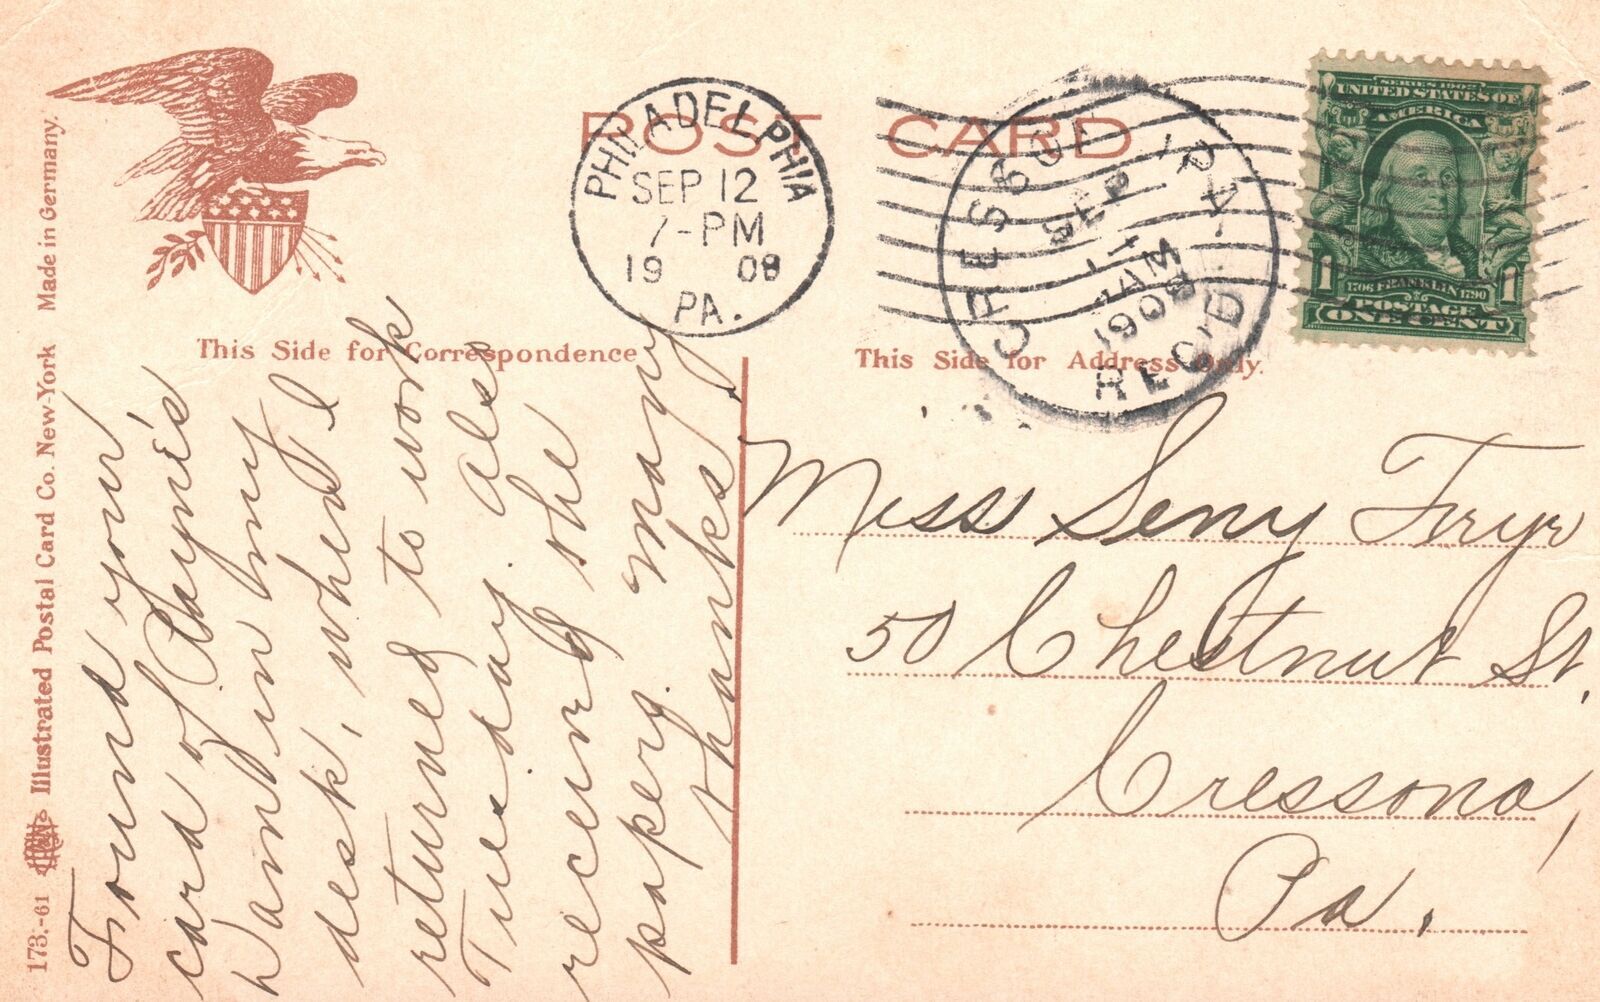 POST CARD
PHILADELPHIA
SEP 12
7-PM
1908
PA.
CRESSONA PA.
SEP
AM
1908
REC'D
SERIES 1902
UNITED STATES OF
AMERICA
1 1
1706 FRANKLIN 1790
POSTAGE
ONE CENT
This Side for Correspondence
This Side for Address Only.
173.-61 Illustrated Postal Card Co. New-York Made in Germany.
Found your
card of Payne's
in my
desk, when I
returned to work
Tuesday. Also
received the
papers. many
thanks
Miss Seny Fryr
50 Chestnut St.
Cressona,
Pa.